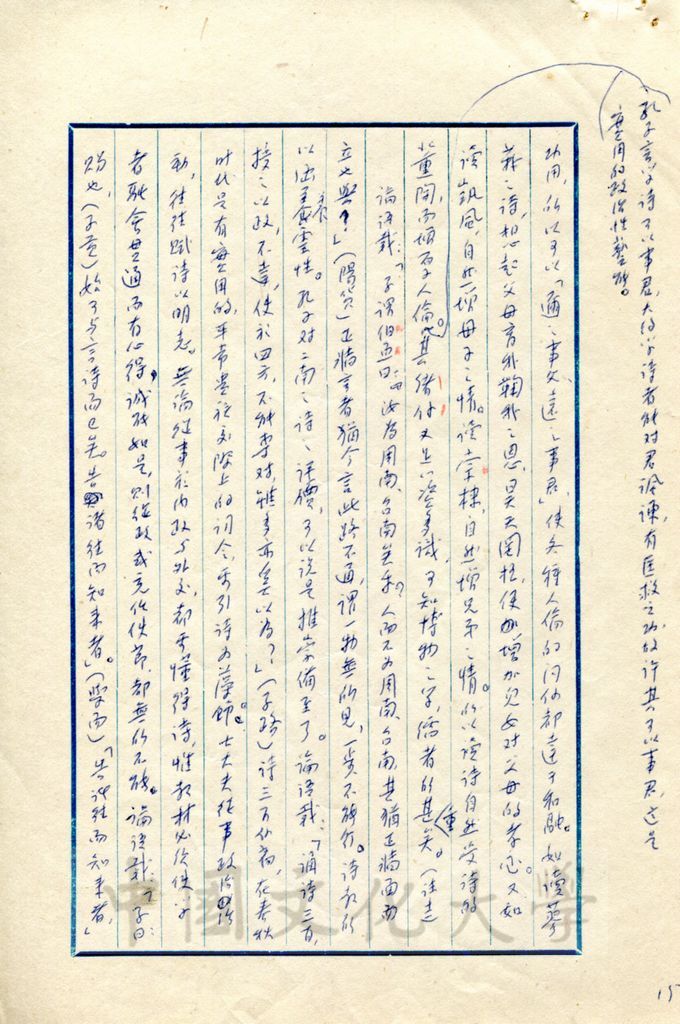 孔子言學詩可以事君,大約學詩者能對君諷諫,有匡救之功,故許其可以事君,這是
實用的政治性藝能。
功用,所以可以「邇之事父,遠之事君」,使各種人倫的關係都達于和融。如讀蓼
莪之詩,想起父母育我鞠我之恩,昊天罔極,便增加兒女對父母的孝思。又如
讀凱風,自然增母子之情。讀棠棣,自然增兄弟之情。所以讀詩自然受詩的
薰陶,而增厚人倫。其緒餘又足以多識,可知博物之學,儒者所甚重矣。
論語載:「子謂伯魚曰:汝為周南、召南矣乎?人而不為周南、召南,其猶正牆面而
立也與?」(陽貨)正牆面者猶今言此路不通,謂一物無所見,一步不能行。詩教所
以涵養靈性。孔子對二南之詩之評價,可以說是推崇備至了。論語載:「誦詩三百,
授之以政,不達,使於四方,不能專對,雖多亦奚以為?」(子路)詩三百份,在春秋
時代是有實用的,平常貴族交際上的詞令,要引詩為藻飾。士大夫從事政治活
動,往往賦詩以明志。無論從事於內政與外交,都要懂得詩,惟教材必須使學
者融會貫通而有心得,誠能如是,則從政或充作使節,都無所不能。論語載:「子曰:
賜也,(子貢)始可與言詩而已矣。告諸往而知來者。」(學而)「告諸往而知來者」
15
中國文化大學